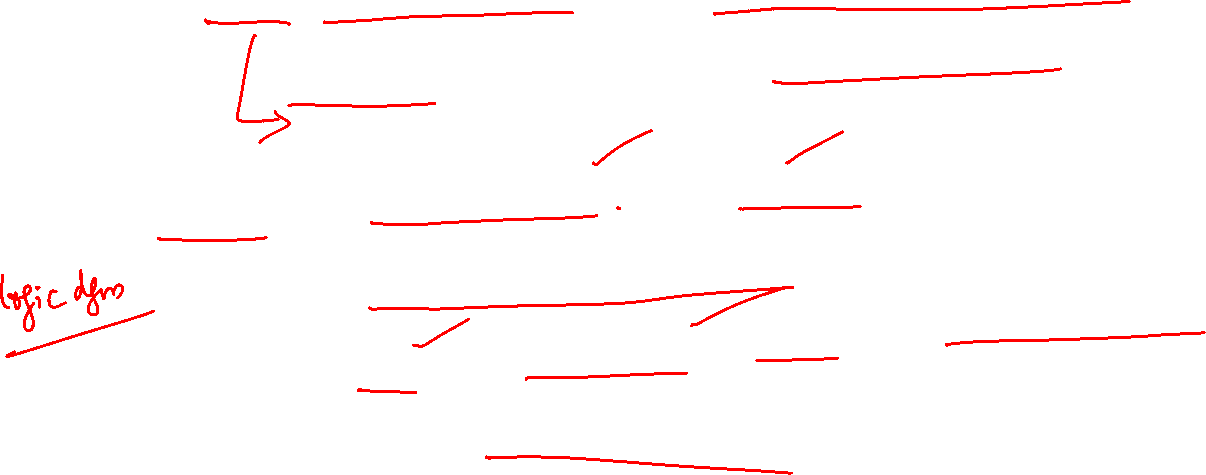 logic dfm